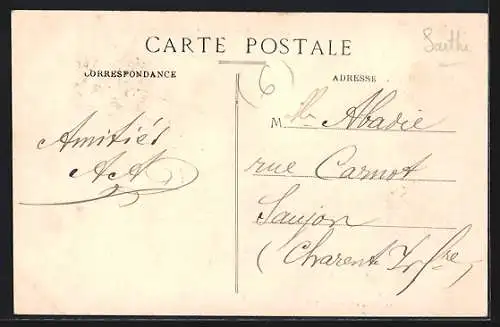 Sarthe
CARTE POSTALE
CORRESPONDANCE
ADRESSE
(6)
Amitiés
AA
Mlle Abadie
rue Carnot
Saujon
(Charente Infre)